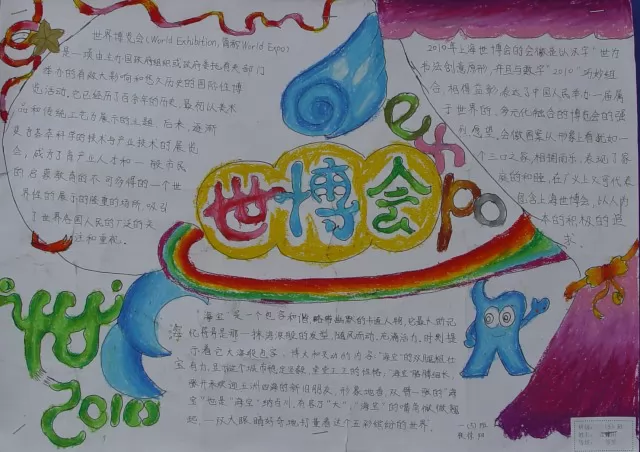 世界博览会(World Exhibition,简称World Expo)
是一项由主办国政府组织或政府委托有关部门
举办的有较大影响和悠久历史的国际性博
览活动,它已经历了百余年的历史,最初以美术
品和传统工艺品展示的主题,后来,逐渐
变为荟萃科学的技术与产业技术的展览
会,成为了育产业人才和一般市民
的启蒙教育的不可多得的一个世
界性的展示的能量的场所,吸引
了世界各国人民的广泛的关
注和重视。
2010年上海世博会的会徽是以汉字"世"为
书法创意原形,并且与数字"2010"巧妙组
合,相得益彰,表达了中国人民举办一届属
于世界的,多元化融合的博览会的强
烈愿望。会徽图案从形象上看犹如一
个三口之家,相拥而乐,表现了家
庭的和睦,在广义上又可代表
包含上海世博会,以人为
本的积极的追
求。
expo
世博会
2010
海宝
"海宝"是一个包容和谐,幽默的卡通人物,它最大的记
忆符号是那一抹海浪般的发型,随风而动,充满活力,时刻提
示着它大海般包容,博大和灵动的内容。"海宝"的双腿粗壮
有力,显
"海宝"的嘴角微微翘
起,一双大眼睛好奇地打量着这个五彩缤纷的世界。